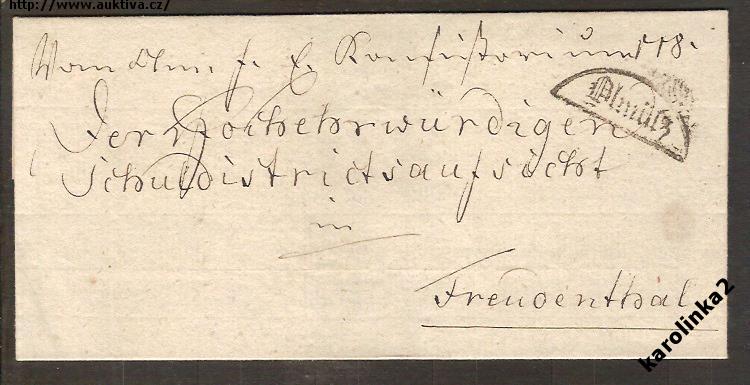 http://www.auktiva.cz/
Vom Olm. f. e. Konsistorium 118.
Olmütz
Der Hochehrwürdigen
Schuldistrictsaufsicht
in
Freudenthal
karolinka2